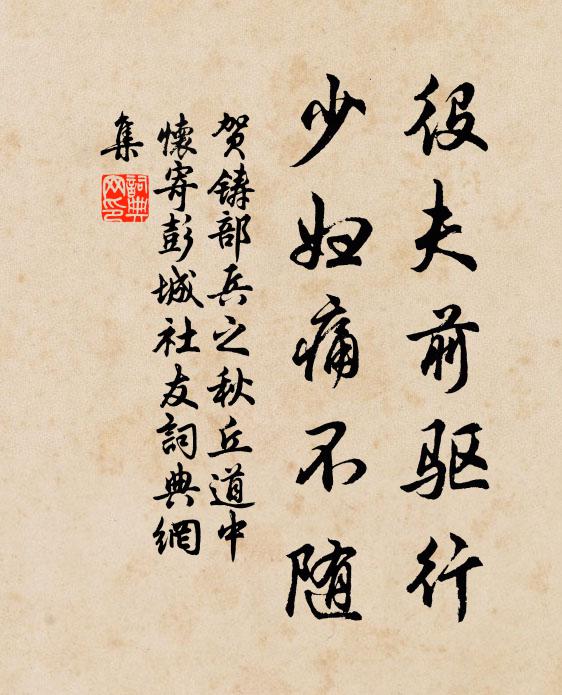 役夫前驱行
少妇痛不随
贺铸部兵之秋丘道中
懷寄彭城社友詞典網
集
詞典网印